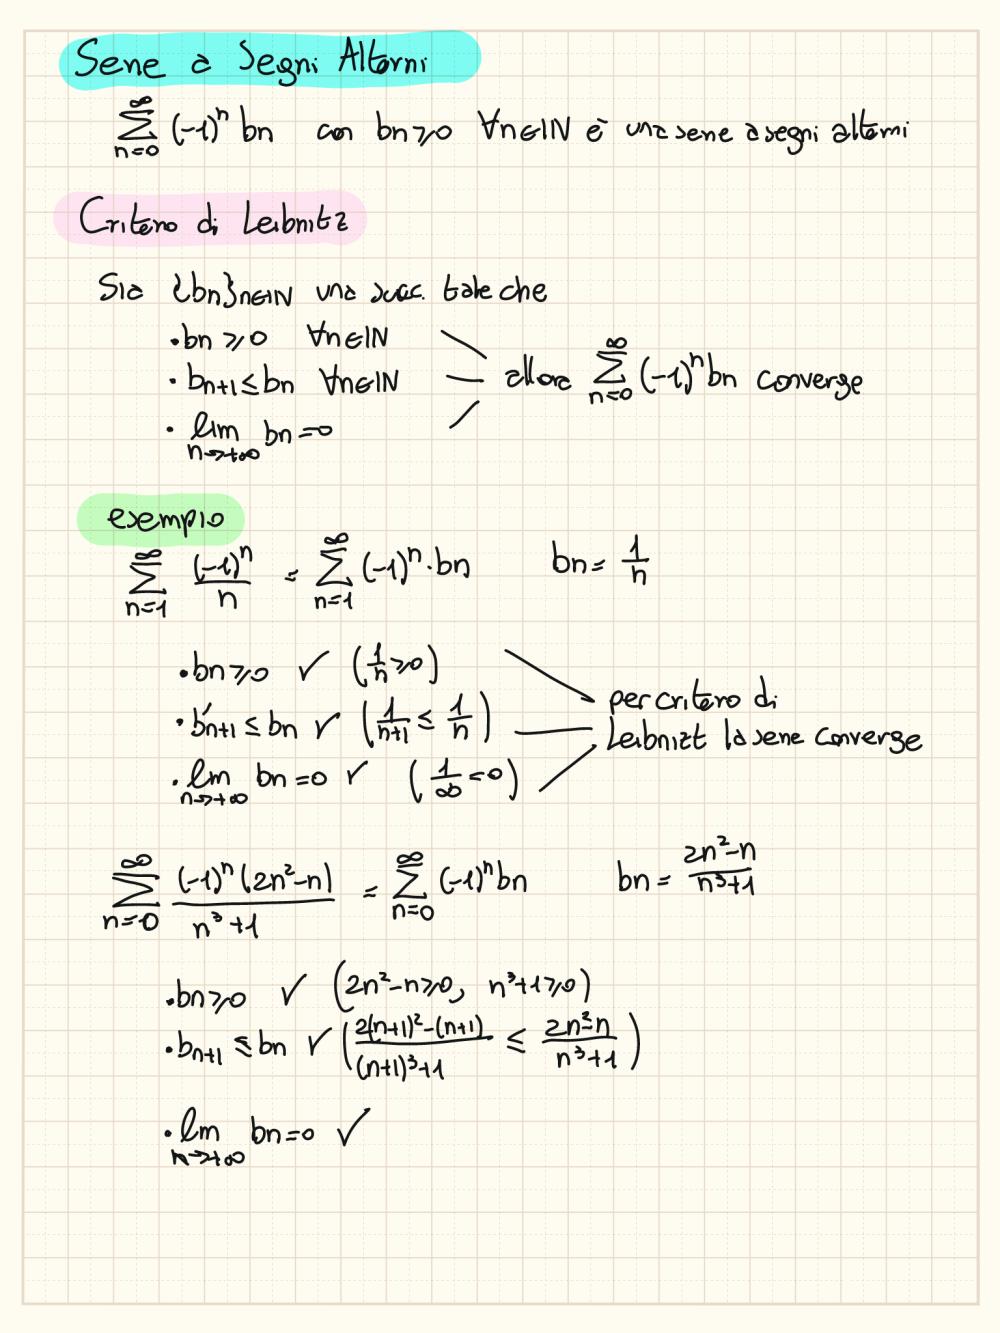 Serie a Segni Alterni
∞∑n=0 (-1)^n bn con bn≥0 ∀n∈IN è una serie a segni alterni
Criterio di Leibnitz
Sia {bn}n∈IN una succ. tale che
·bn ≥0 ∀n∈IN
·bn+1≤bn ∀n∈IN allora ∞∑n=0 (-1)^n bn converge
· lim n→+∞ bn=0
esempio
∞∑n=1 (-1)^n/n = ∞∑n=1 (-1)^n·bn bn= 1/n
·bn≥0 ✓ (1/n ≥0)
·bn+1 ≤ bn ✓ (1/n+1 ≤ 1/n) per critero di
Leibnizt la serie converge
·lim n→+∞ bn=0 ✓ (1/∞ =0)
∞∑n=0 (-1)^n (2n²-n)/n³+1 = ∞∑n=0 (-1)^n bn bn= 2n²-n/n³+1
·bn≥0 ✓ (2n²-n≥0, n³+1≥0)
·bn+1 ≤ bn ✓ (2(n+1)²-(n+1)/(n+1)³+1 ≤ 2n²-n/n³+1)
·lim n→+∞ bn=0 ✓